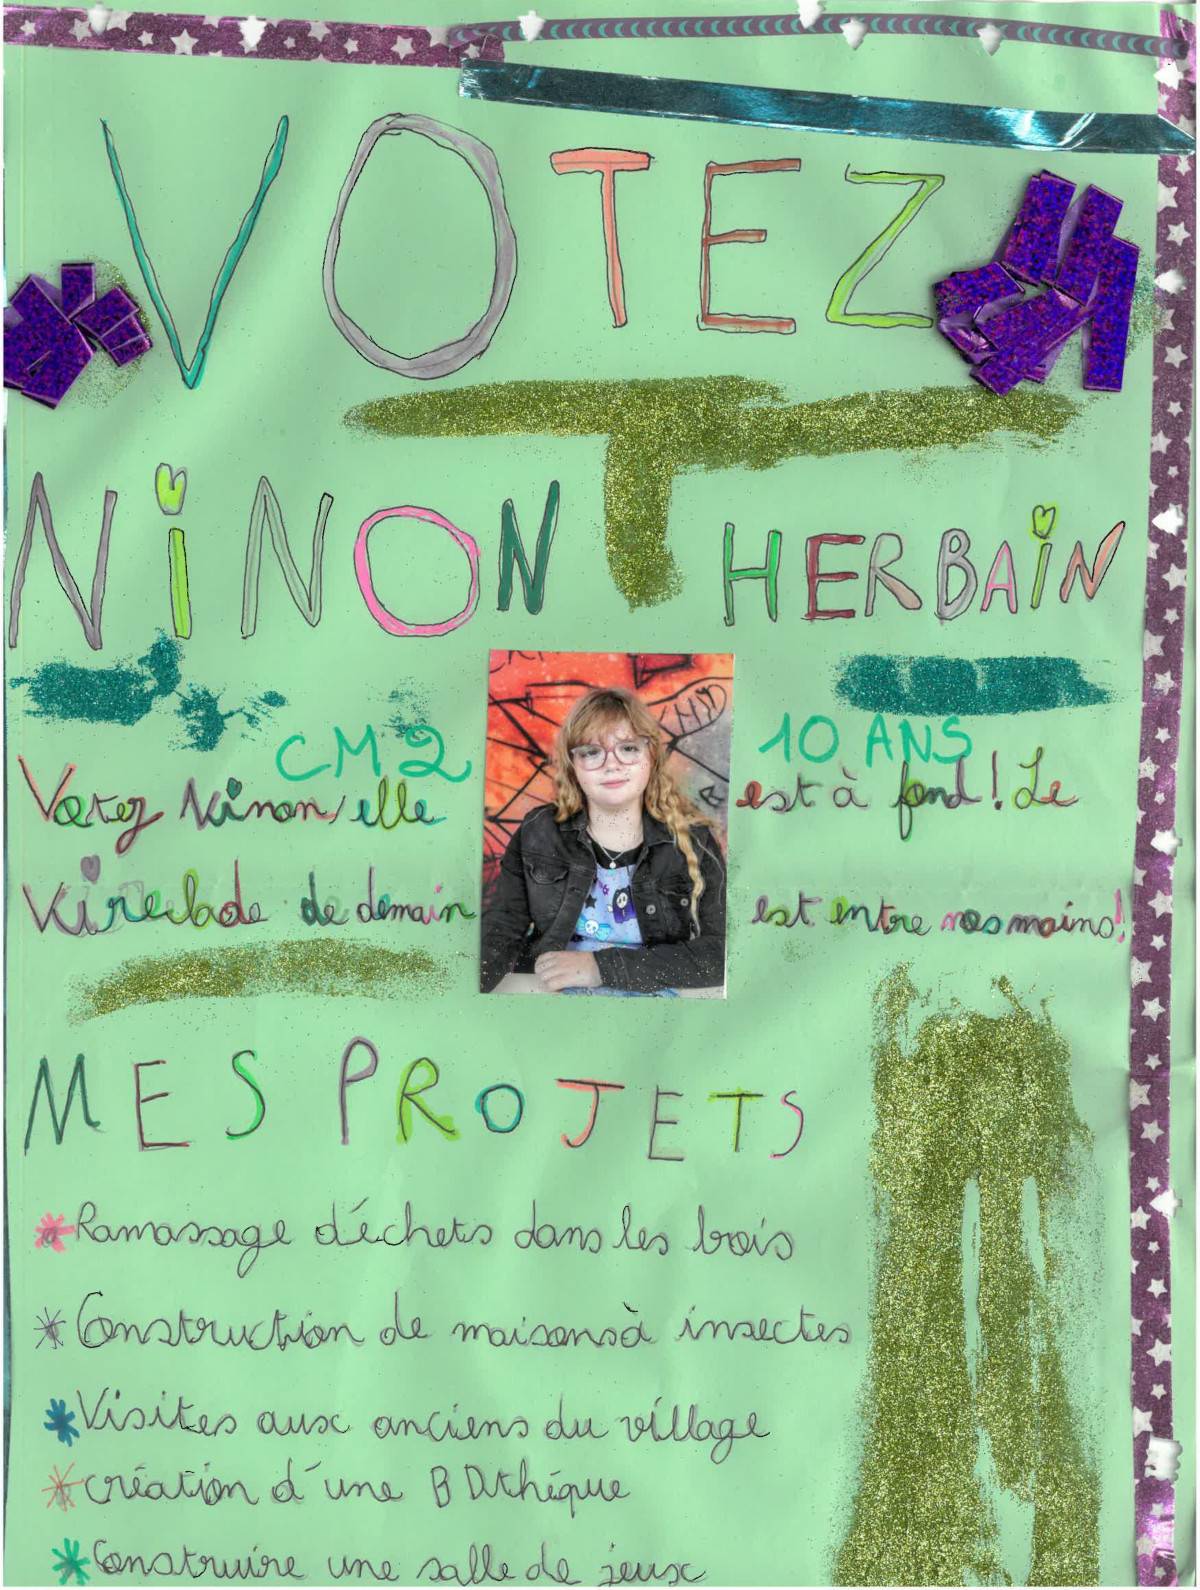 VOTEZ
NiNON HERBAiN
CM2 10 ANS
Votez Ninon, elle est à fond! Le
Virelade de demain est entre nos mains!
MES PROJETS
* Ramassage déchets dans les bois
* Construction de maisons à insectes
* Visites aux anciens du village
* création d'une BDthéque
* Construire une salle de jeux